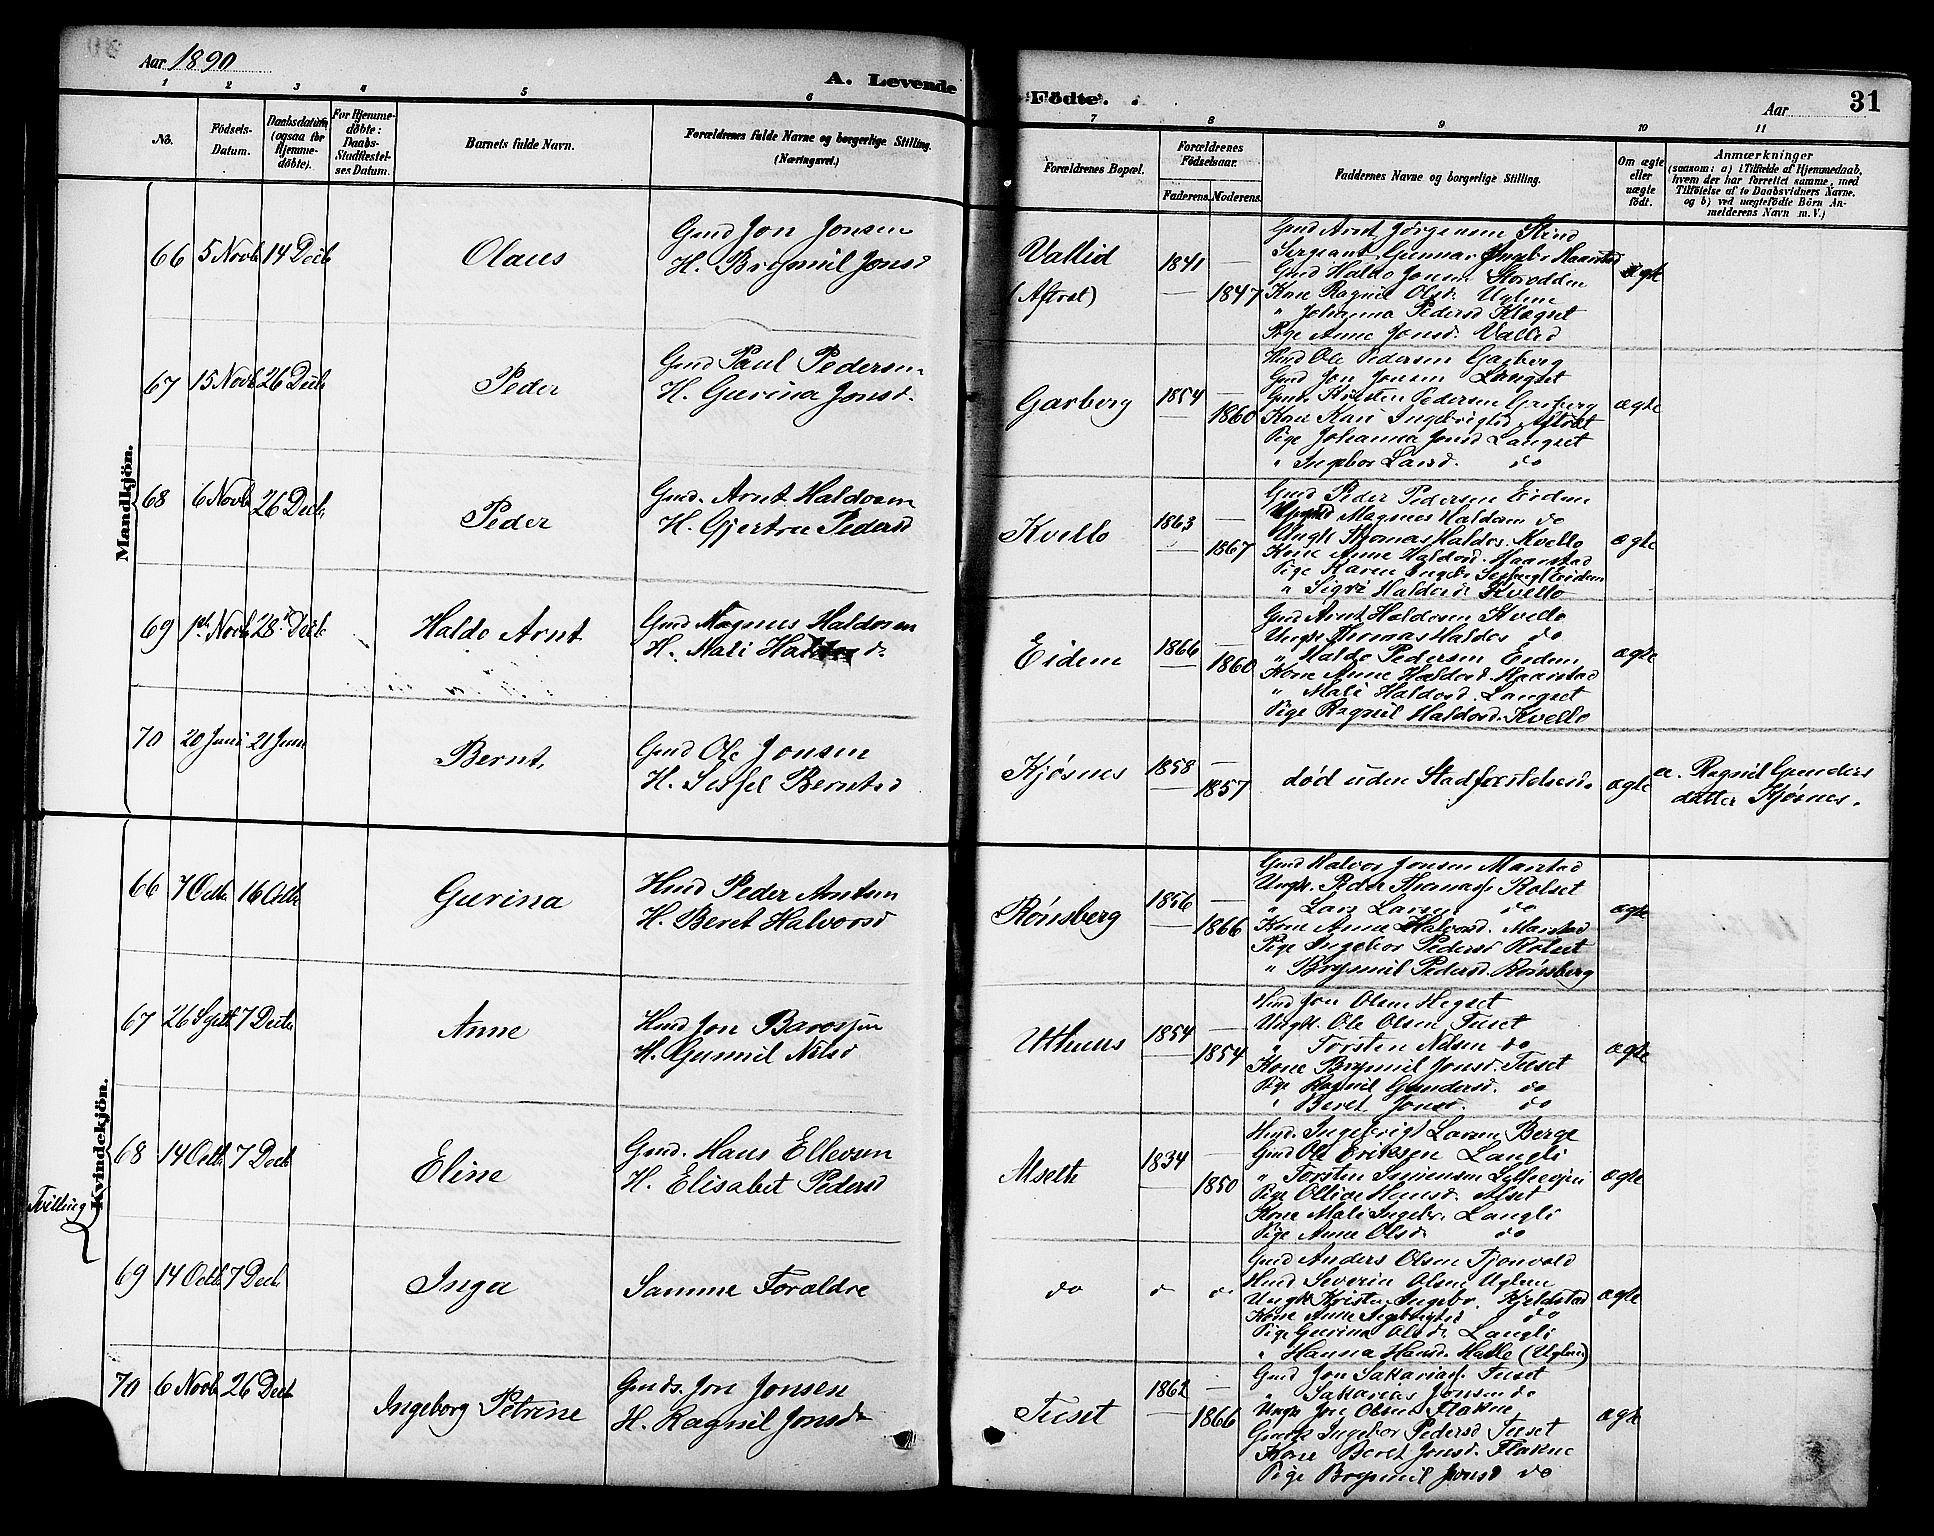 Aar 1890
A. Levende
Födte.
Aar
31
1 2 3 4 5 6 7 8 9 10 11
No.
Födsels-
Datum.
Daabsdatum
(ogsaa for
Hjemme-
döbte).
For Hjemme-
döbte:
Daabs-
Stadfæstel-
ses Datum.
Barnets fulde Navn.
Forældrenes fulde Navne og borgerlige Stilling.
(Næringsvei.)
Forældrenes Bopæl.
Forældrenes
Födselsaar.
Faderens. Moderens.
Faddernes Navne og borgerlige Stilling.
Om ægte
eller
uægte
födt.
Anmærkninger
(saasom: a) i Tilfælde af Hjemmedaab,
hvem der har forrettet samme, med
Tilföielse af to Daabsvidners Navne,
og b) ved uægtefödte Börn An-
melderens Navn m. V.)
Mandkjön.
66 5 Novb 14 Decb
Olaus
Gmd Jon Jonsen
H. Brynnil Jonsd
Vallid
(Aftret)
1841
1847
Gmd Arnt Jörgensen Stind
Sergeant Gunnar Haarstad
Gmd Haldo Jonsen Storodden
Kone Ragnil Olsd. Uglem
" Johanna Pedersd Klægset
Pige Anne Jonsd. Vallid
ægte
67 15 Novb 26 Decb
Peder
Gmd Paul Pedersen
H. Gurina Jonsd.
Garberg
1854
1860
Hmd Ole Pedersen Garberg
Gmd Jon Jonsen Langset
Gmd. Kristen Pedersen Garberg
Kone Kari Ingebrigtsd Aftret
Pige Johanna Jonsd Langset
" Ingebor Larsd. do
ægte
68 6 Novb 26 Decb
Peder
Gmd. Arnt Haldosen
H. Gjertru Pedersd
Kvello
1863
1867
Gmd Peder Pedersen Eidem
Magnus Haldosen do
Ungk Thomas Haldos. Kvello
Kone Anne Haldosd. Haarstad
Pige Karen Ingebr Eidem
" Sigri Haldosd. Kvello
ægte
69 1st Novb 28 Decb
Haldo Arnt
Gmd Magnus Haldosen
H. Mali Haldosd.
Eidem
1866
1860
Gmd Arnt Haldosen Kvello
Ungk Thomas Haldos do
" Haldo Pedersen Eidem
Kone Anne Haldosd. Haarstad
" Mali Haldosd. Langset
Pige Ragnil Haldosd. Kvello
ægte
70 20 Juni 21 Juni
Bernt,
Gmd Ole Jonsen
H. Sessel Berntsd
Kjøsnes
1858
1857
død uden Stadfæstelsen.
ægte
a. Ragnil Gunders
datter Kjøsnes.
Kvindekjön.
66 7 Octb 16 Octb
Gurina
Hmd Peder Arntsen
H. Beret Halvorsd
Rønsberg
1856
1866
Gmd Halvor Jonsen Marstad
Ungk. Peder Thomass. Rolset
" Lars Larsen do
Kone Anne Halvorsd. Marstad
Pige Ingebor Pedersd Rolset
" Brynnil Pedersd. Rønsberg
ægte
67 26 Septb 7 Decb
Anne
Hmd Jon
H. Gunnil Nilsd
Uthuus
1854
1854
Hmd Jon Olsen Hegset
Ungk. Ole Olsen Tuset
" Torsten Nilsen do
Kone Brynnil Jonsd. Tuset
Pige Ragnil Gundersd. do
" Beret Jonsd. do
ægte
Tvilling
68 14 Octb 7 Decb
Eline
Gmd. Hans Ellevsen
H. Elisabet Pedersd
Alseth
1834
1850
Hmd. Ingebrigt Larsen Berge
Gmd Ole Eriksen Langli
" Torsten
Pige Ollive Hansd. Alset
Kone Mali Ingebr. Langli
Pige Anne Olsd do
ægte
69 14 Octb 7 Decb
Inga
Samme Foraldre
do
Gmd Anders Olsen Tjonvold
Hmd Severin Olsen Uglem
Ungk Kristen Ingebr. Kjeldstad
Kone Anne Ingebrigtsd do
Pige Gurina Olsd. Langli
" Hanna Hansd. (Uglem)
ægte
70 6 Novb 26 Decb
Ingeborg Petrine
Gmds. Jon Jonsen
H. Ragnil Jonsd
Tuset
1862
1866
Gmd Jon Sakariass. Tuset
" Sakarias Jonsen do
Ungk Jon Olsen Flakne
Gmds Ingebor Pedersd Tuset
Kone Beret Jonsd. Flakne
Pige Brynnil Jonsd do
ægte